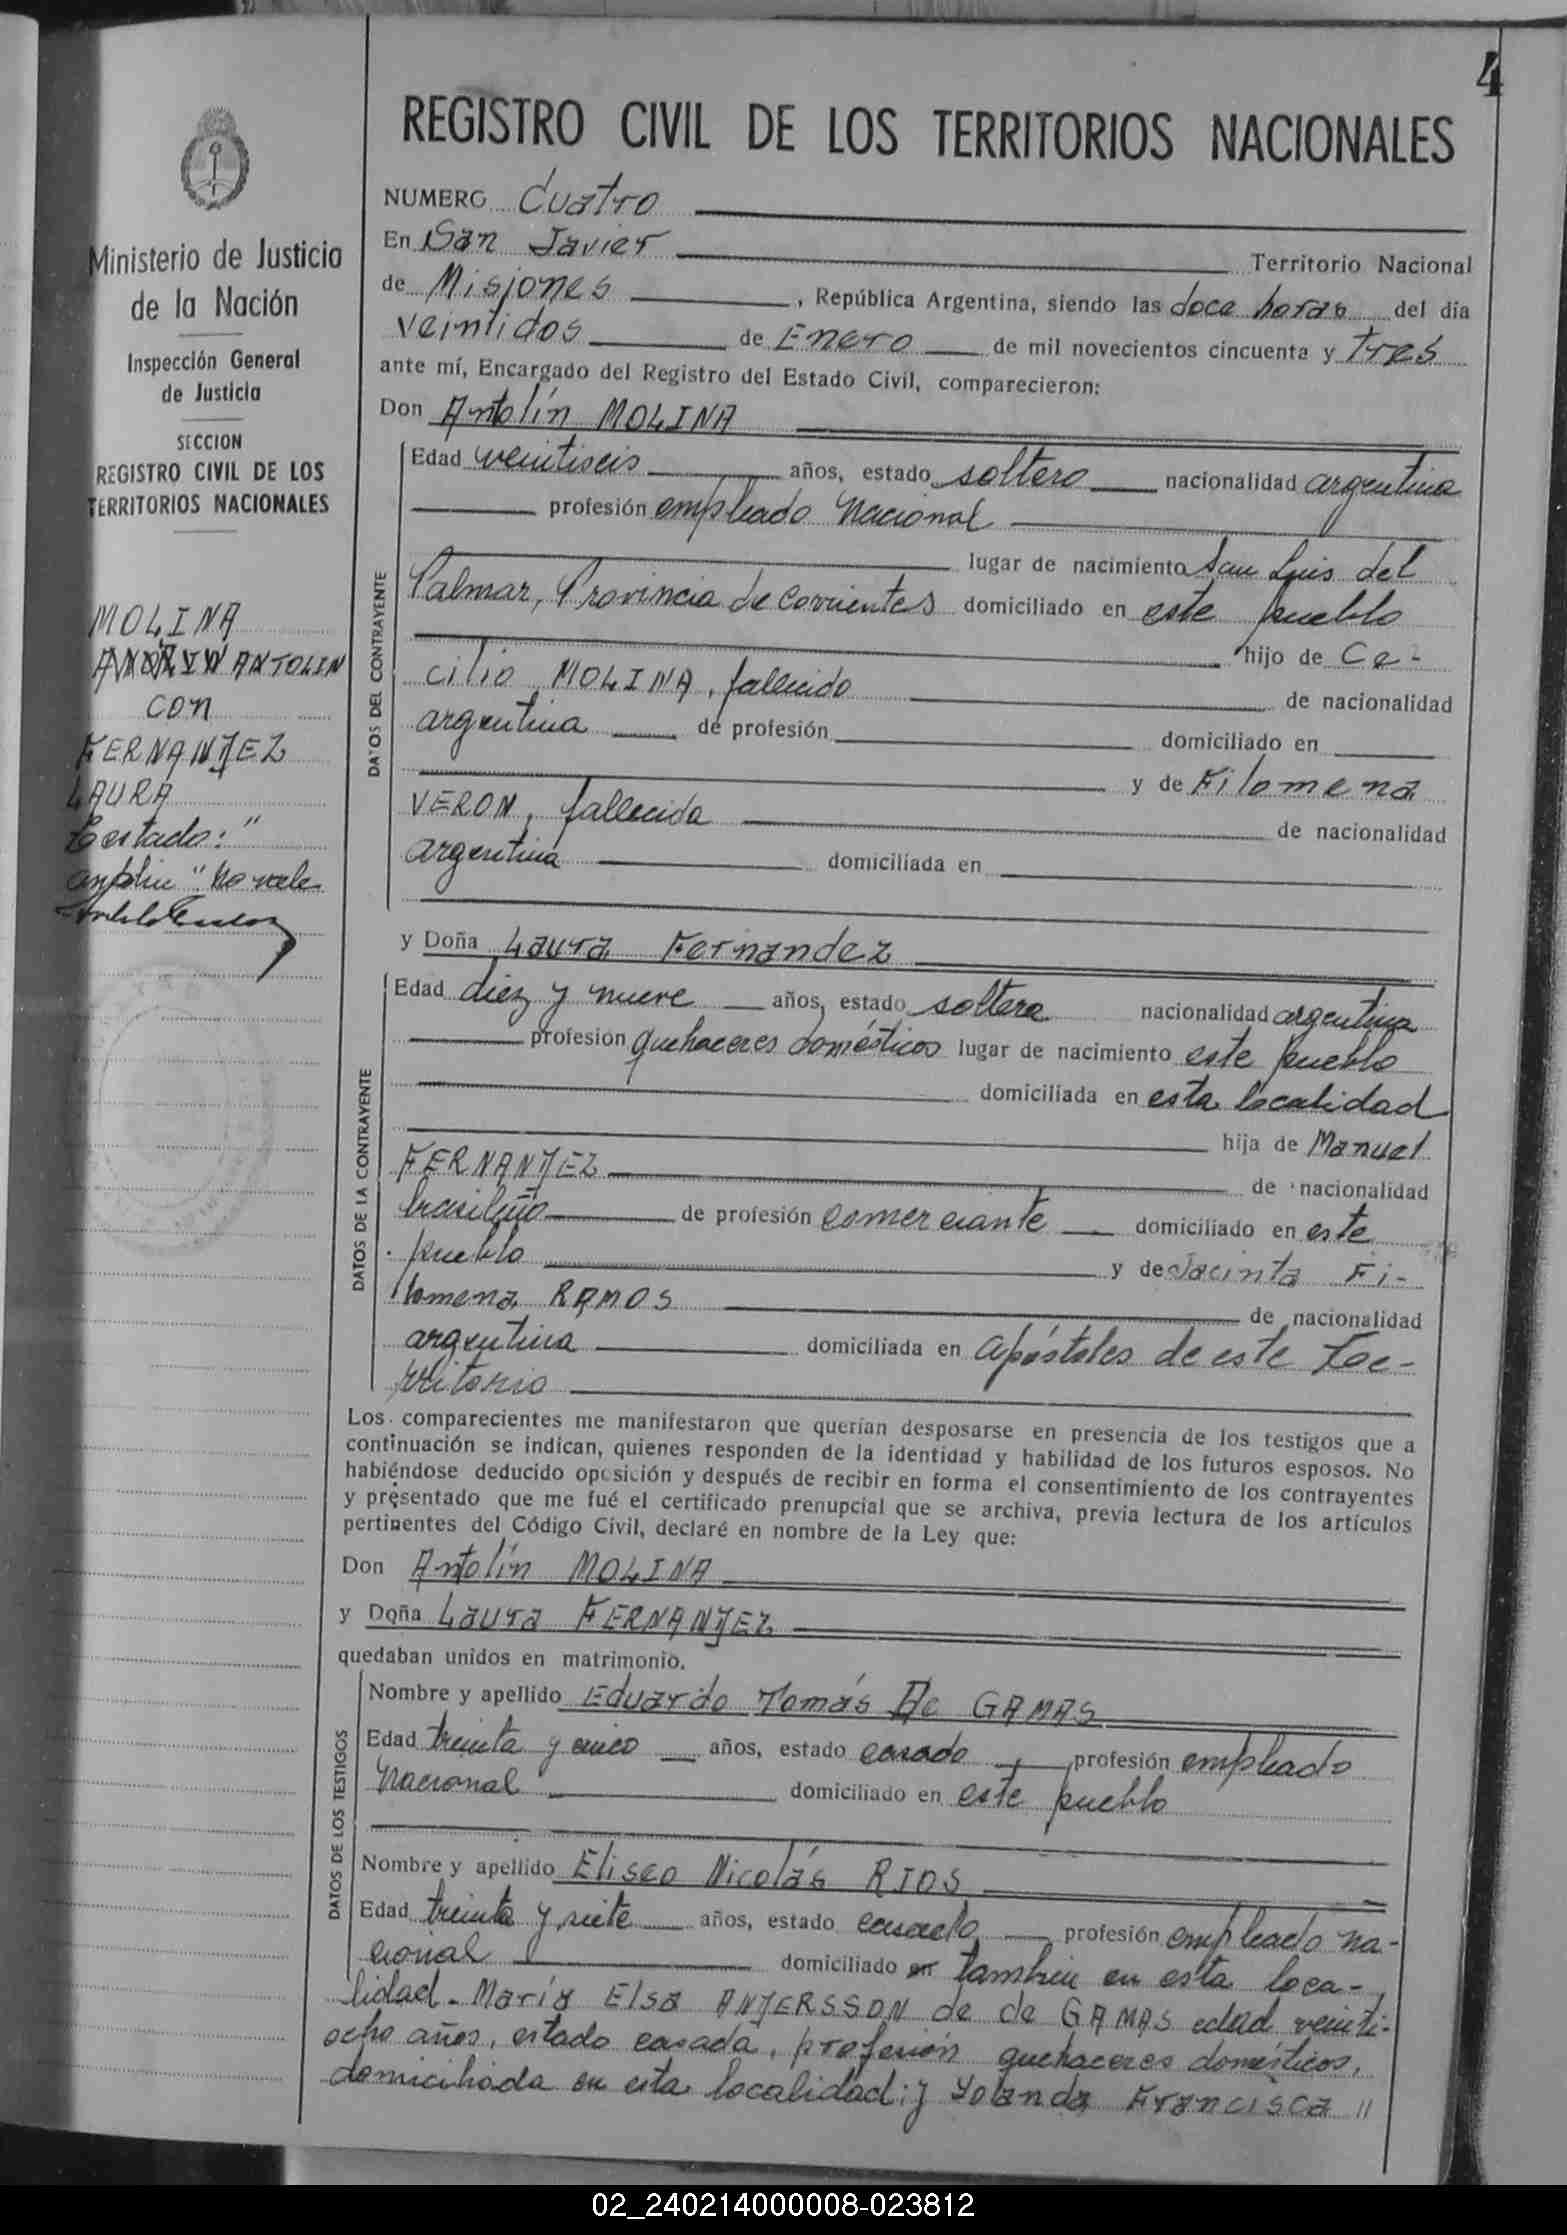 4
REGISTRO CIVIL DE LOS TERRITORIOS NACIONALES
Ministerio de Justicia
de la Nación
Inspección General
de Justicia
SECCION
REGISTRO CIVIL DE LOS
TERRITORIOS NACIONALES
MOLINA
ANTOLIN
con
FERNANDEZ
LAURA
Testado: "
" No vale
NUMERO Cuatro
En San Javier Territorio Nacional
de Misiones, República Argentina, siendo las doce horas del día
veintidos de Enero de mil novecientos cincuenta y tres
ante mí, Encargado del Registro del Estado Civil, comparecieron:
Don Antolín MOLINA
DATOS DEL CONTRAYENTE
Edad veintiseis años, estado soltero nacionalidad argentina
profesión empleado Nacional
lugar de nacimiento San Luis del
Palmar, Provincia de Corrientes domiciliado en este pueblo
hijo de Ce-
cilio MOLINA, fallecido de nacionalidad
argentina de profesión domiciliado en
y de Filomena
VERON, fallecida de nacionalidad
argentina domiciliada en
y Doña Laura Fernandez
DATOS DE LA CONTRAYENTE
Edad diez y nueve años, estado soltera nacionalidad argentina
profesión quehaceres domésticos lugar de nacimiento este pueblo
domiciliada en esta localidad
hija de Manuel
FERNANDEZ de nacionalidad
brasileño de profesión comerciante domiciliado en este
pueblo y de Jacinta Fi-
lomena RAMOS de nacionalidad
argentina domiciliada en Apóstoles de este Te-
rritorio
Los comparecientes me manifestaron que querían desposarse en presencia de los testigos que a
continuación se indican, quienes responden de la identidad y habilidad de los futuros esposos. No
habiéndose deducido oposición y después de recibir en forma el consentimiento de los contrayentes
y presentado que me fué el certificado prenupcial que se archiva, previa lectura de los artículos
pertinentes del Código Civil, declaré en nombre de la Ley que:
Don Antolín MOLINA
y Doña Laura FERNANDEZ
quedaban unidos en matrimonio.
DATOS DE LOS TESTIGOS
Nombre y apellido Eduardo Tomás De GAMAS
Edad treinta y cinco años, estado casado, profesión empleado
Nacional domiciliado en este pueblo
Nombre y apellido Eliseo Nicolás RIOS
Edad treinta y siete años, estado casado, profesión empleado na-
cional domiciliado en tambien en esta loca-
lidad. María Elsa ANDERSSON de de GAMAS edad veinti-
ocho años, estado casada, profesión quehaceres domésticos,
domiciliada en esta localidad; y Yolanda Francisca "
02_240214000008-023812